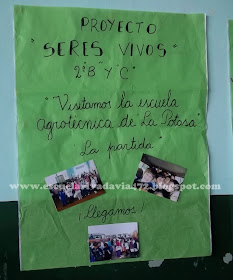 PROYECTO
"SERES VIVOS"
2°B" Y "C"
"Visitamos la escuela
Agrotécnica de La Potasa"
"La partida"
www.escuelarivadavia472.blogspot.com
¡Llegamos!